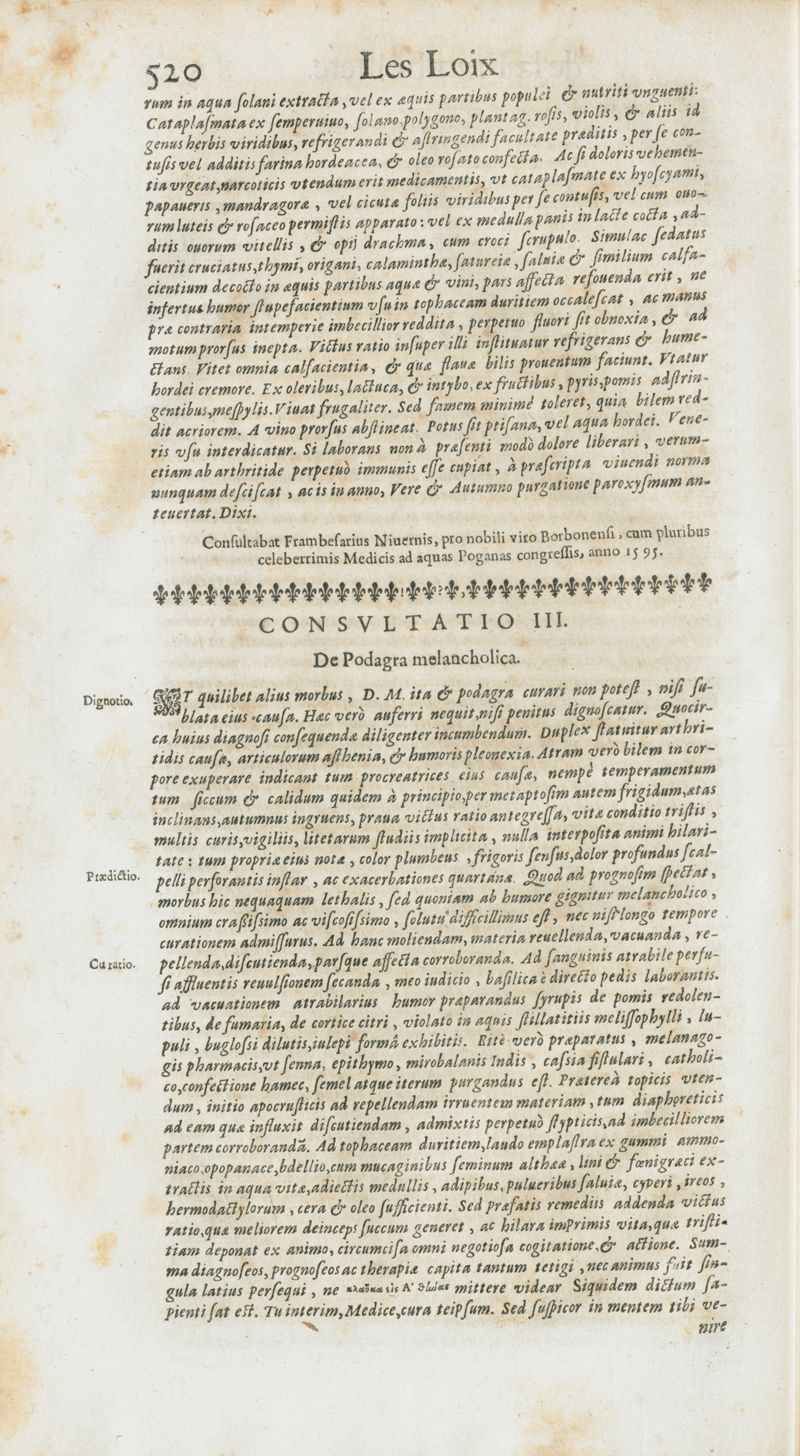 520
Les Loix
rum in aqua ſolani extracta, vel ex æquis partibus populei & nutriti vnguenti:
Cataplaſmata ex ſemperuiuo, ſolano, polygono, plantag. roſis, violis, & aliis id
genus herbis viridibus, refrigerandi & aſtringendi facultate præditis, per ſe con-
tuſis vel additis farina hordeacea, & oleo roſato confecta. Ac ſi doloris vehemen-
tia vrgeat, narcoticis vtendum erit medicamentis, vt cataplaſmate ex hyoſcyami,
papaueris, mandragoræ, vel cicutæ foliis viridibus per ſe contuſis, vel cum ouo-
rum luteis & roſaceo permiſtis apparato: vel ex medulla panis in lacte cocta, ad-
ditis ouorum vitellis, & opij drachma, cum croci ſcrupulo. Simulac ſedatus
fuerit cruciatus, thymi, origani, calaminthæ, ſatureiæ, ſaluiæ & ſimilium calfa-
cientium decocto in æquis partibus aquæ & vini, pars affecta refouenda erit, ne
infertus humor ſtupefacientium vſu in tophaceam duritiem occaleſcat, ac manus
præ contraria intemperie imbecillior reddita, perpetuo fluori ſit obnoxia, & ad
motum prorſus inepta. Victus ratio inſuper illi inſtituatur refrigerans & hume-
ctans. Vitet omnia calfacientia, & quæ flauæ bilis prouentum faciunt. Vtatur
hordei cremore. Ex oleribus, lactuca, & intybo, ex fructibus, pyris, pomis adſtrin-
gentibus, meſpylis. Viuat frugaliter. Sed famem minimè toleret, quia bilem red-
dit acriorem. A vino prorſus abſtineat. Potus ſit ptiſana, vel aqua hordei. Vene-
ris vſu interdicatur. Si laborans non à præſenti modò dolore liberari, verum-
etiam ab arthritide perpetuò immunis eſſe cupiat, à præſcripta viuendi norma
nunquam deſciſcat, ac is in anno, Vere & Autumno purgatione paroxyſmum an-
teuertat. Dixi.
Conſultabat Frambeſarius Niuernis, pro nobili viro Borbonenſi, cum pluribus
celeberrimis Medicis ad aquas Poganas congreſſis, anno 1595.
CONSVLTATIO III.
De Podagra melancholica.
Dignotio.
VT quilibet alius morbus, D. M. ita & podagra curari non poteſt, niſi ſu-
blata eius cauſa. Hæc verò auferri nequit, niſi penitus dignoſcatur. Quocir-
ca huius diagnoſi conſequendæ diligenter incumbendum. Duplex ſtatuitur arthri-
tidis cauſa, articulorum aſthenia, & humoris pleonexia. Atram verò bilem in cor-
pore exuperare indicant tum procreatrices eius cauſæ, nempè temperamentum
tum ſiccum & calidum quidem à principio, per metaptoſim autem frigidum, ætas
inclinans, autumnus ingruens, praua victus ratio antegreſſa, vitæ conditio triſtis,
multis curis, vigiliis, litetarum ſtudiis implicita, nulla interpoſita animi hilari-
tate: tum propriæ eius notæ, color plumbeus, frigoris ſenſus, dolor profundus ſcal-
Prædictio.
pelli perforantis inſtar, ac exacerbationes quartanæ. Quod ad prognoſim ſpectat,
morbus hic nequaquam lethalis, ſed quoniam ab humore gignitur melancholico,
omnium craſſiſsimo ac viſcoſiſsimo, ſolutu difficillimus eſt, nec niſi longo tempore
curationem admiſſurus. Ad hanc moliendam, materia reuellenda, vacuanda, re-
Curatio.
pellenda, diſcutienda, parſque affecta corroboranda. Ad ſanguinis atrabile perfu-
ſi affluentis reuulſionem ſecanda, meo iudicio, baſilica è directo pedis laborantis.
ad vacuationem atrabilarius humor præparandus ſyrupis de pomis redolen-
tibus, de fumaria, de cortice citri, violato in aquis ſtillatitiis meliſſophylli, lu-
puli, bugloſsi dilutis, iulepi formâ exhibitis. Ritè verò præparatus, melanago-
gis pharmacis, vt ſenna, epithymo, mirobalanis Indis, caſsia fiſtulari, catholi-
co, confectione hamec, ſemel atque iterum purgandus eſt. Prætereà topicis vten-
dum, initio apocruſticis ad repellendam irruentem materiam, tum diaphoreticis
ad eam quæ influxit diſcutiendam, admixtis perpetuò ſtypticis, ad imbecilliorem
partem corroborandã. Ad tophaceam duritiem, laudo emplaſtra ex gummi ammo-
niaco, opopanace, bdellio, cum mucaginibus ſeminum altheæ, lini & fœnigræci ex-
tractis in aqua vitæ, adiectis medullis, adipibus, pulueribus ſaluiæ, cyperi, ireos,
hermodactylorum, cera & oleo ſufficienti. Sed præfatis remediis addenda victus
ratio, quæ meliorem deinceps ſuccum generet, ac hilara imprimis vita, quæ triſti-
tiam deponat ex animo, circumciſa omni negotioſa cogitatione, & actione. Sum-
ma diagnoſeos, prognoſeos ac therapiæ capita tantum tetigi, nec animus fuit ſin-
gula latius perſequi, ne mittere videar Siquidem dictum ſa-
pienti ſat eſt. Tu interim, Medice, cura teipſum. Sed ſuſpicor in mentem tibi ve-
nire